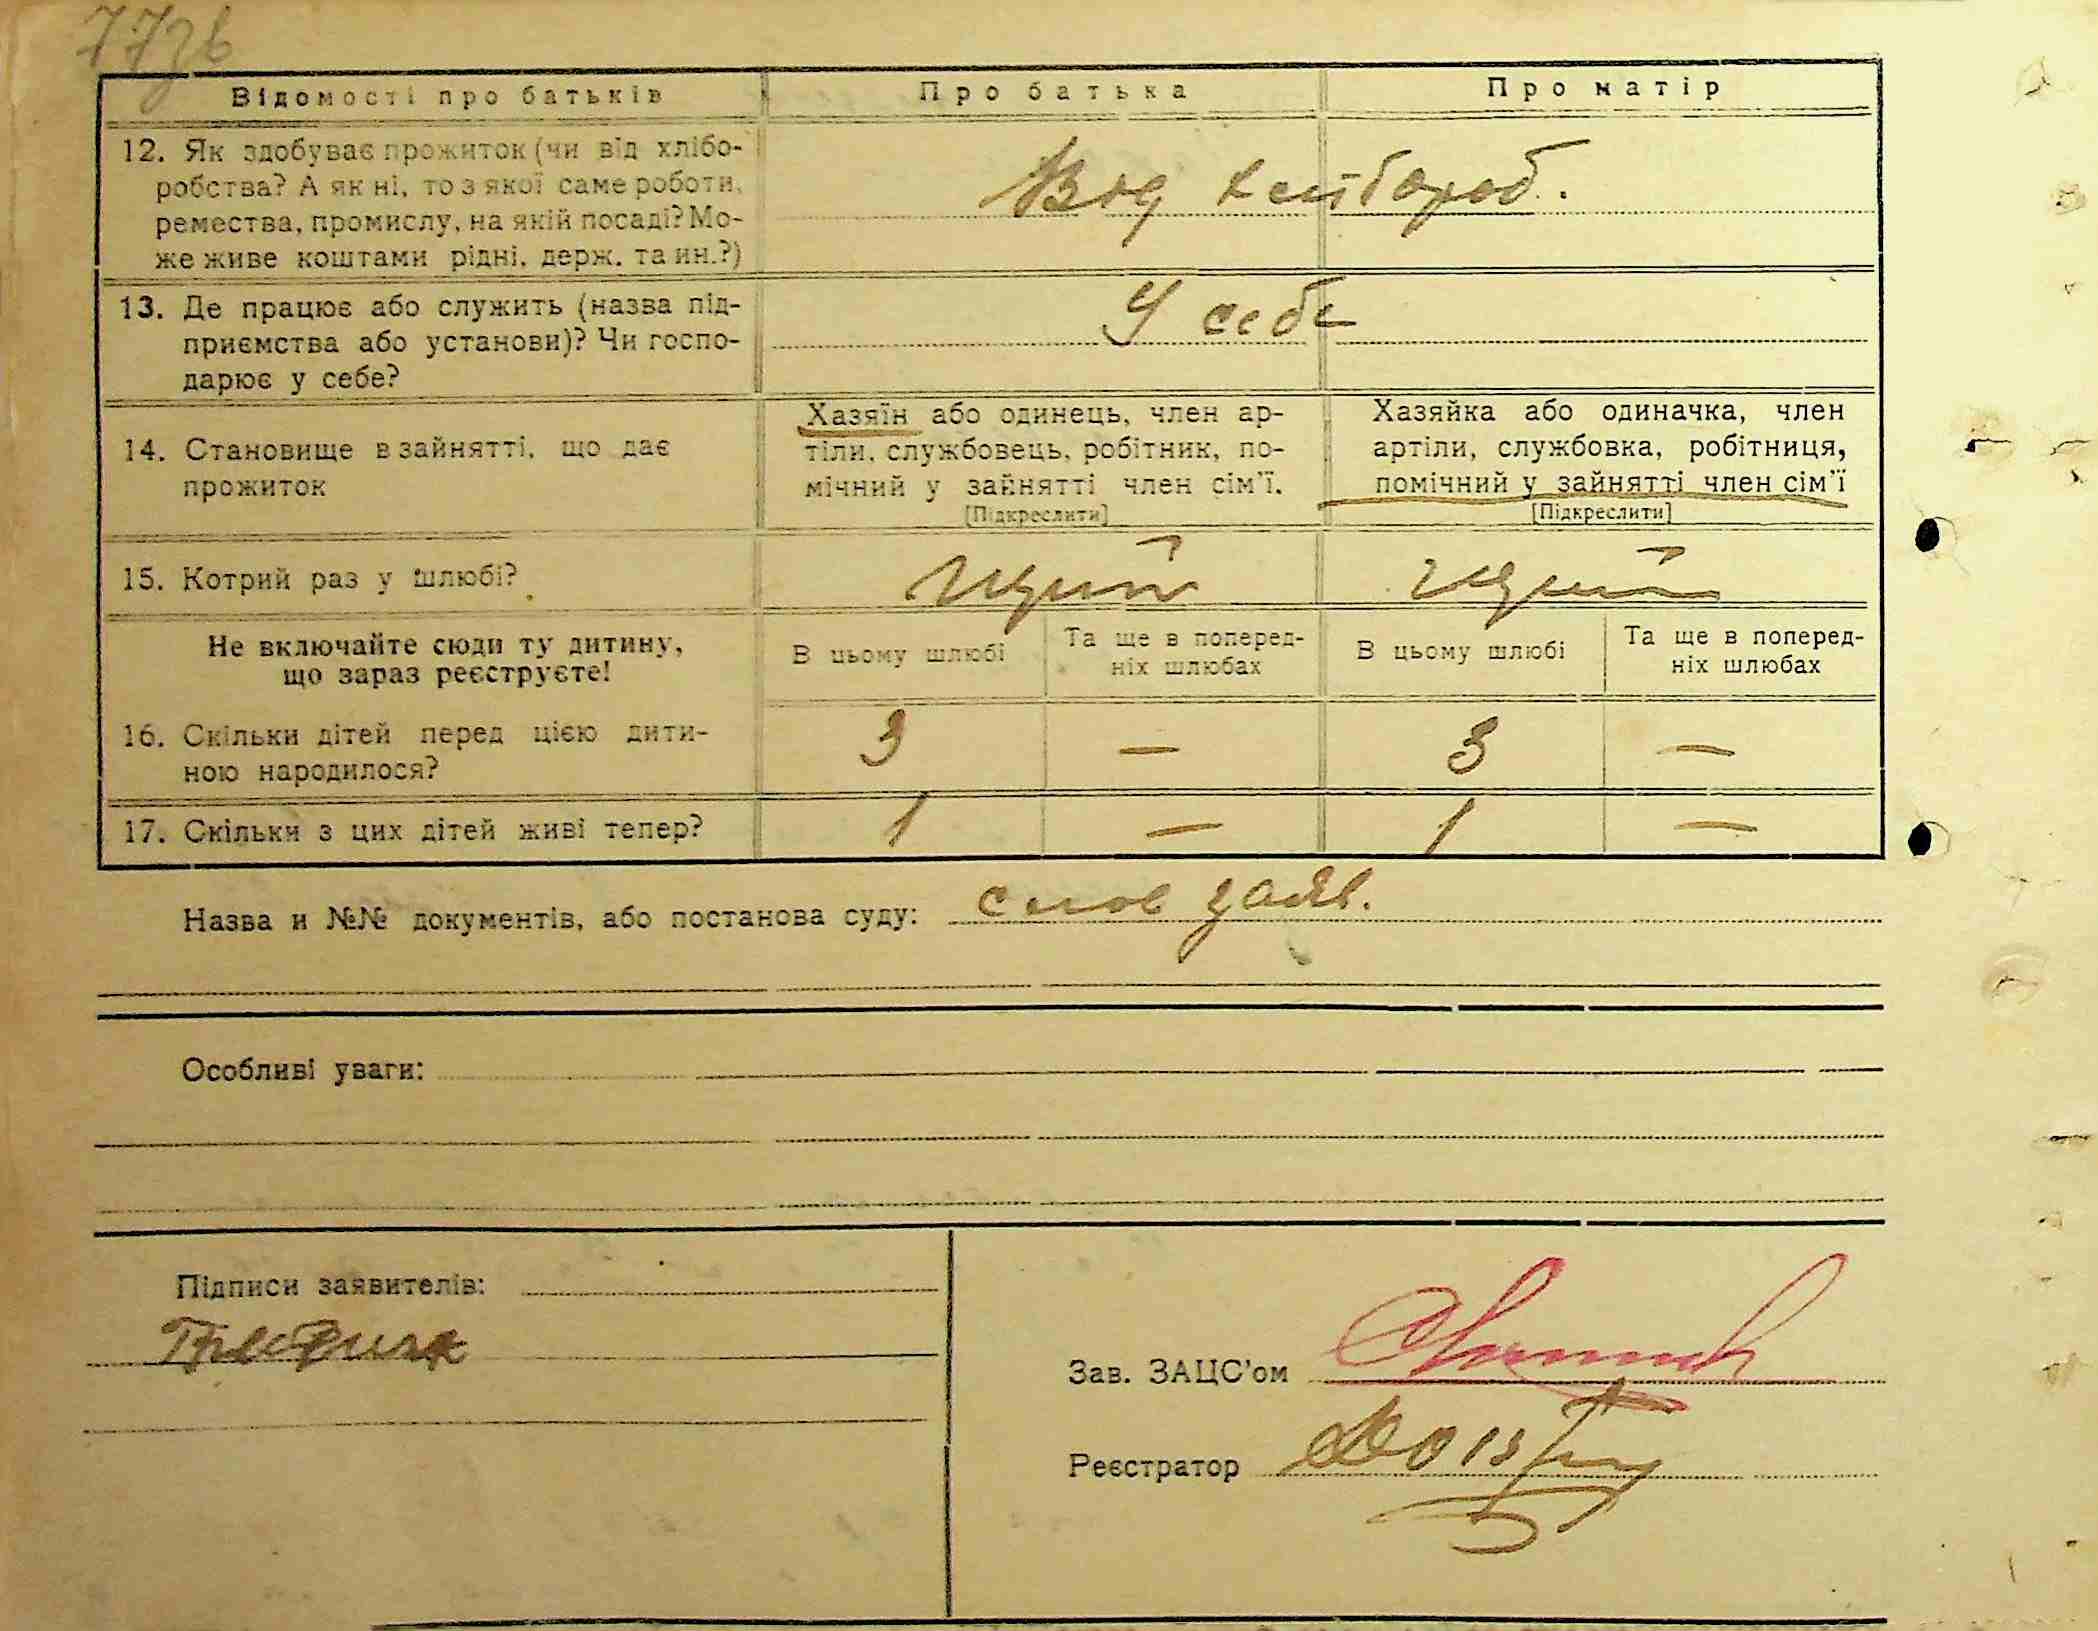 77зв
Відомості про батьків Про батька Про матір
12. Як здобуває прожиток (чи від хлібо-
робства? А як ні, то з якої саме роботи,
ремества, промислу, на якій посаді? Мо-
же живе коштами рідні, держ. та ин.?)
Від хлібороб.
13. Де працює або служить (назва під-
приємства або установи)? Чи госпо-
дарює у себе?
У себе
14. Становище в зайнятті, що дає
прожиток
Хазяїн або одинець, член ар-
тіли, службовець, робітник, по-
мічний у зайнятті член сім'ї.
[Підкреслити]
Хазяйка або одиначка, член
артіли, службовка, робітниця,
помічний у зайнятті член сім'ї
[Підкреслити]
15. Котрий раз у шлюбі?
Не включайте сюди ту дитину,
що зараз реєструєте!
В цьому шлюбі
Та ще в поперед-
ніх шлюбах
В цьому шлюбі
Та ще в поперед-
ніх шлюбах
16. Скільки дітей перед цією дити-
ною народилося?
3 — 3 —
17. Скільки з цих дітей живі тепер? 1 — 1 —
Назва и №№ документів, або постанова суду: слов заяв.
Особливі уваги:
Підписи заявителів:
Зав. ЗАЦС'ом
Реєстратор